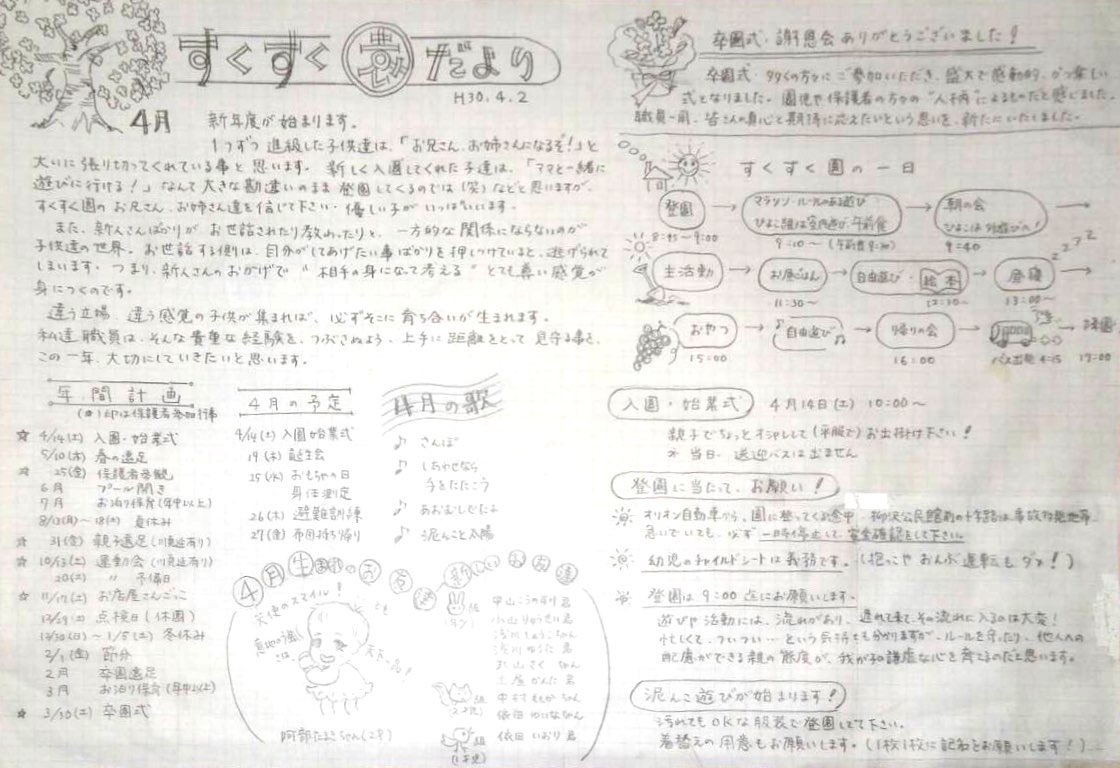 すくすく裏だより
H30.4.2
4月 新年度が始まります。
1つずつ進級した子供達は、「お兄さん、お姉さんになるぞ!」と
大いに張り切ってくれている事と思います。新しく入園してくれた子達は、「ママと一緒に
遊びに行ける!」なんて大きな勘違いのまま登園してくるのでは(笑)などと思いますが、
すくすく園のお兄さん、お姉さん達を信じて下さい。優しい子がいっぱいいます。
また、新人さんばかりがお世話されたり教わったりと、一方的な関係にならないのが
子供達の世界。お世話する側は、自分がしてあげたい事ばかりを押しつけていると、逃げられて
しまいます。つまり、新人さんのおかげで"相手の身になって考える"とても尊い感覚が
身につくのです。
違う立場、違う感覚の子供が集まれば、必ずそこに育ち合いが生まれます。
私達職員は、そんな貴重な経験を、つぶさぬよう、上手に距離をとって見守る事を、
この一年、大切にしていきたいと思います。
年間計画
(☆)印は保護者参加行事
☆ 4/14(土) 入園・始業式
5/10(木) 春の遠足
☆ 25(金) 保護者参観
6月 プール開き
7月 お泊り保育(年中以上)
8/13(月)~18(土) 夏休み
☆ 31(金) 親子遠足(川見送有り)
☆ 10/13(土) 運動会
20(土) 〃 予備日
☆ 11/17(土) お店屋さんごっこ
12/29(土) 点検日(休園)
12/30(日)~1/5(土) 冬休み
2/1(金) 節分
2月 卒園遠足
3月 お泊り保育(年中以上)
☆ 3/30(土) 卒園式
4月の予定
4/14(土) 入園始業式
19(木) 誕生会
25(水) おもちゃの日
身体測定
26(木) 避難訓練
27(金) 布団持ち帰り
4月の歌
♪ さんぽ
♪ しあわせなら
手をたたこう
♪ あおむしでたよ
♪ 泥んこ太陽
4月生まれのお友
天使のスマイル!
新しいお友達
組
組
組
卒園式・謝恩会ありがとうございました!
卒園式・多くの方々にご参加いただき、盛大で感動的、かつ楽しい
式となりました。園児や保護者の方々の"人柄"によるものだと感じました。
職員一同、皆さんの真心と期待に応えたいという思いを、新たにいたしました。
すくすく園の一日
登園
8:45~9:00
マラソン・ルールのある遊び
ひよこ組は室内遊び、午前食
9:10~(午前食9:30)
朝の会
ひよこは外遊びへ!
9:40
主活動
お昼ごはん
11:30~
自由遊び・絵本
12:10~
昼寝
13:00~
おやつ
15:00
♪自由遊び♪
帰りの会
16:00
バス出発 4:15
降園
17:00
入園・始業式 4月14日(土) 10:00~
親子でちょっとオシャレして(平服で)お出掛け下さい!
※ 当日、送迎バスは出ません
登園に当たって、お願い!
オリオン自動車から、園に登ってくる途中、柳沢公民館前の十字路は事故多発地帯。
急いでいても、必ず一時停止して、安全確認をして下さい。
幼児のチャイルドシートは義務です。(抱っこやおんぶ運転もダメ!)
登園は9:00迄にお願いします。
遊びや活動には、流れがあり、遅れて来て、その流れに入るのは大変!
忙しくて、ついつい…という気持も分かりますが、ルールを守ったり、他人への
配慮ができる親の態度が、我が子の謙虚な心を育てるのだと思います。
泥んこ遊びが始まります!
汚れてもOKな服装で登園して下さい。
着替えの用意もお願いします。(1枚1枚に記名をお願いします!)